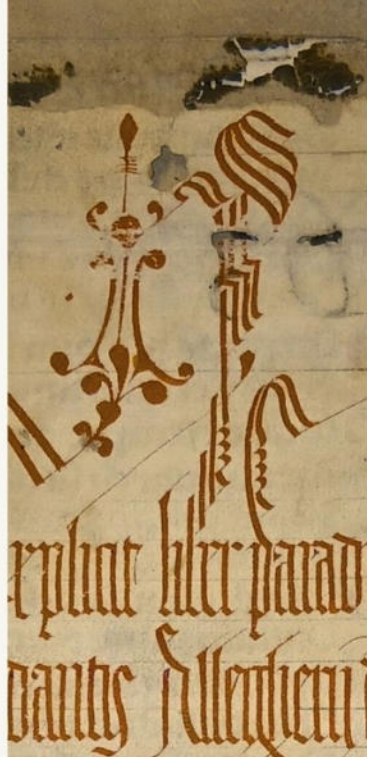 explicit liber parad
dantis Allegherii